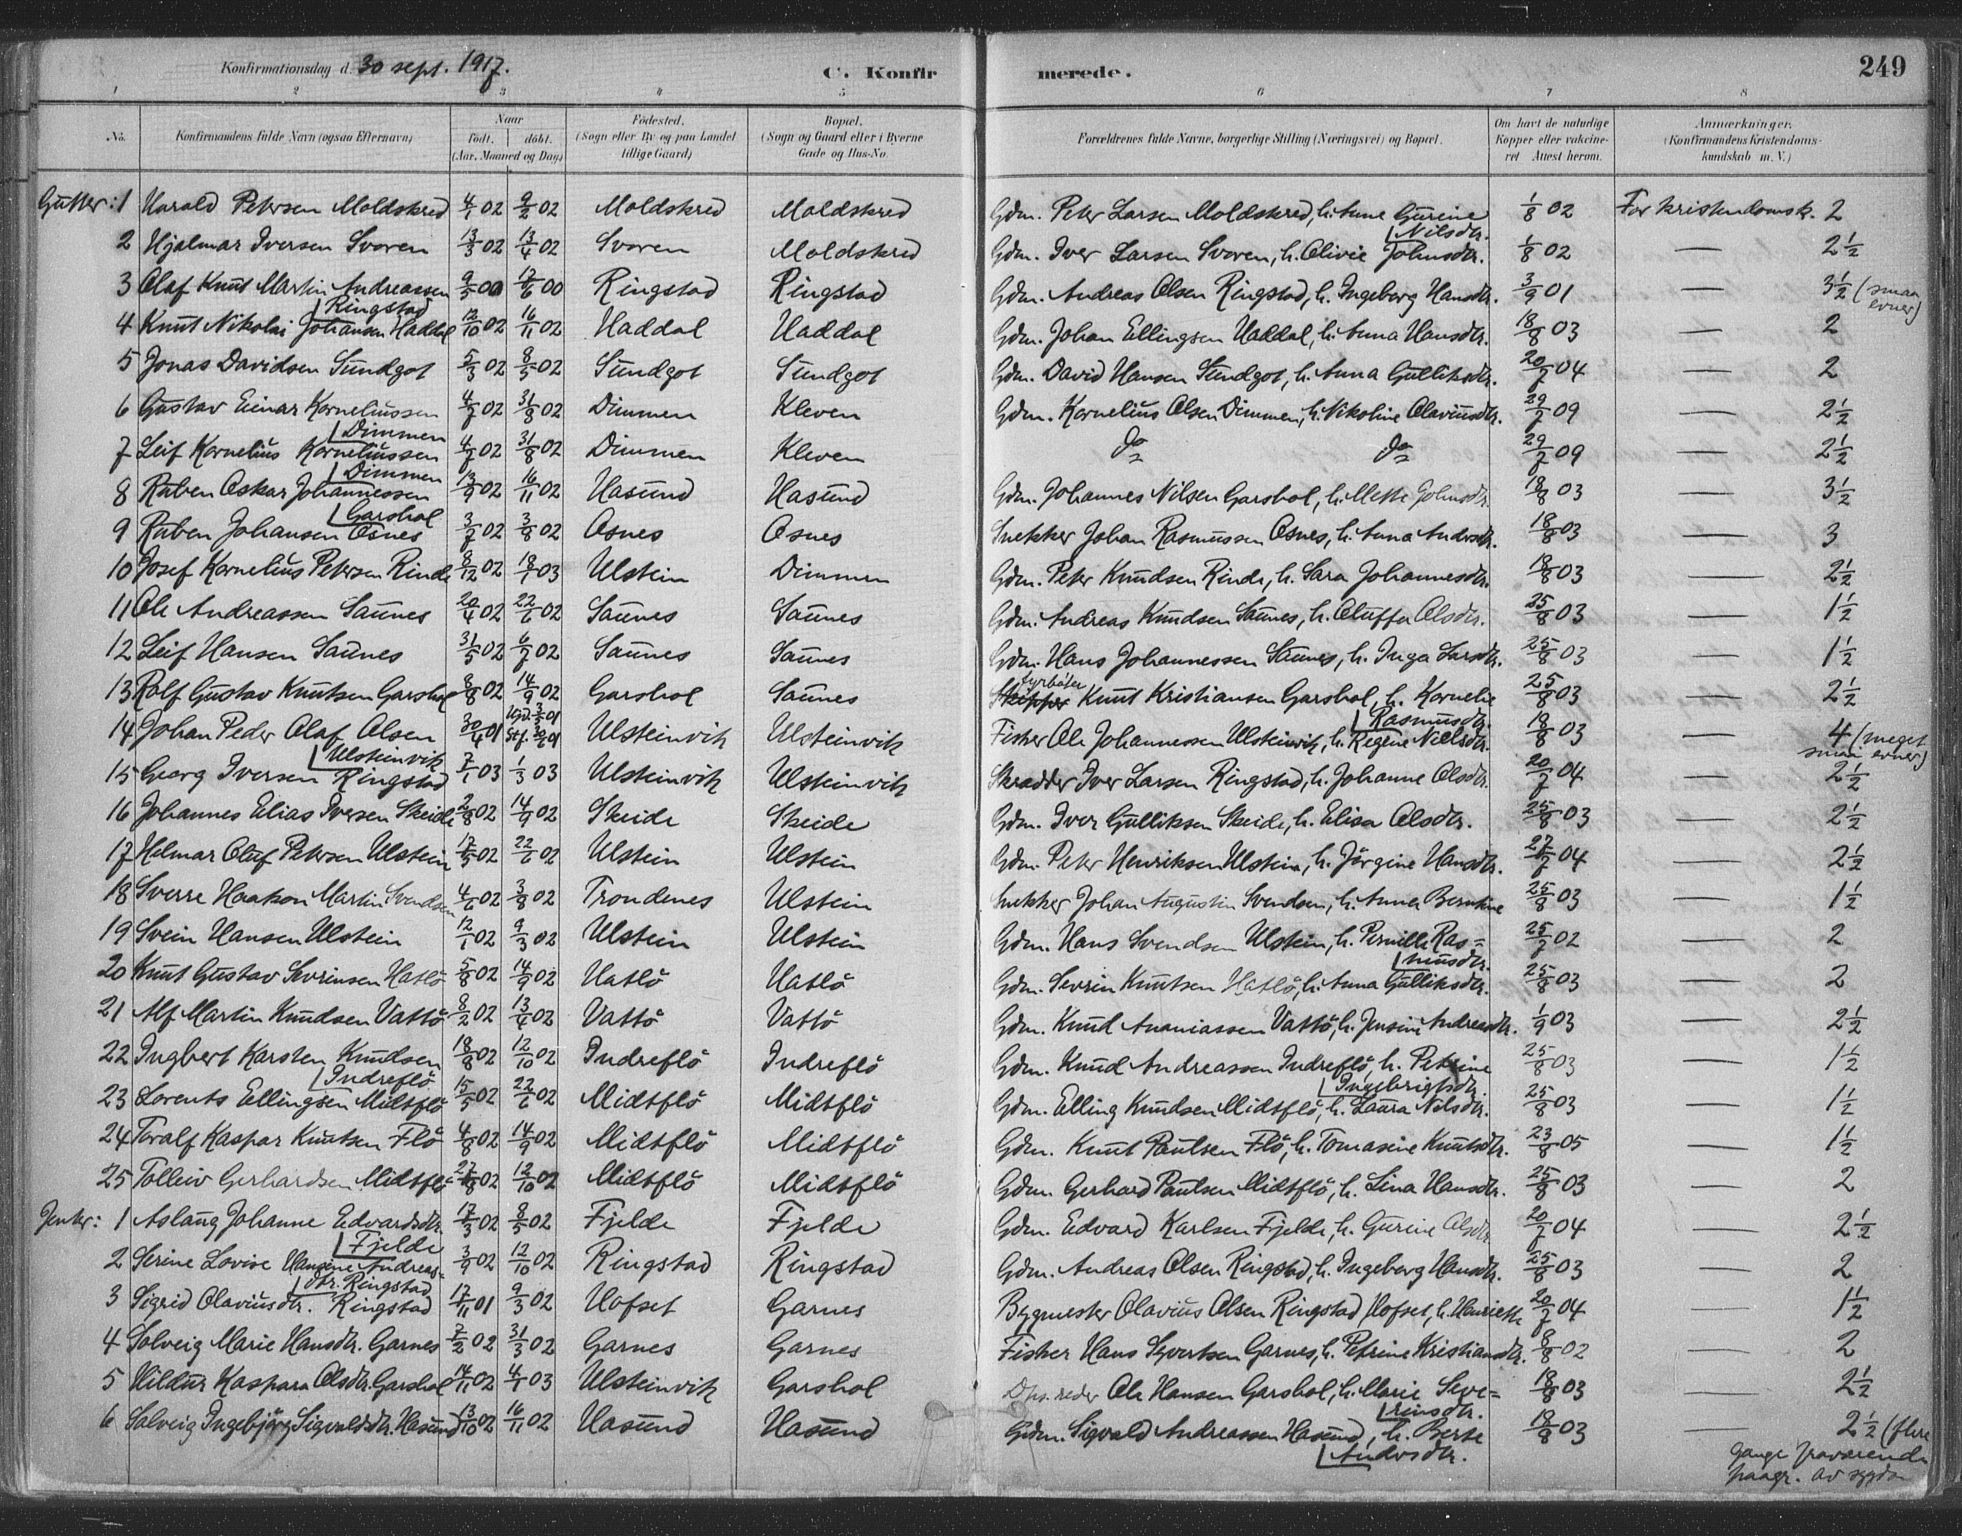 Konfirmationsdag d. 30 sept. 1917. C. Konfirmerede. 249
1 2 3 4 5 6 7 8
No. Konfirmandens fulde Navn (ogsaa Efternavn) Naar født. døbt. (Aar, Maaned og Dag) Fødested. (Sogn eller By og paa Landet tillige Gaard) Bopæl. (Sogn og Gaard eller i Byerne Gade og Hus-No. Forældrenes fulde Navne, borgerlige Stilling (Næringsvei) og Bopæl. Om havt de naturlige Kopper eller vaccineret Attest herom. Anmærkninger. (Konfirmandens Kristendomskundskab m. V.)
Gutter: 1 Harald Petersen Moldskred 4/1 02 9/2 02 Moldskred Moldskred Gdm. Peter Larsen Moldskred, h. Anne Gurine Nilsdtr. 1/8 02 For kristendomsk. 2
2 Hjalmar Iversen Svoren 13/3 02 13/4 02 Svoren Moldskred Gdm. Iver Larsen Svoren, h. Olivie Johnsdtr. 1/8 02 — 2 1/2
3 Olaf Knut Martin Andreassen Ringstad 9/5 00 17/6 00 Ringstad Ringstad Gdm. Andreas Olsen Ringstad, h. Ingeborg Hansdtr. 3/9 01 — 3 1/2 (smaa evner)
4 Knut Nikolai Johansen Haddal 12/10 02 16/11 02 Haddal Haddal Gdm. Johan Ellingsen Haddal, h. Anna Hansdtr. 18/8 03 — 2
5 Jonas Davidsen Sundgot 5/3 02 8/5 02 Sundgot Sundgot Gdm. David Hansen Sundgot, h. Anna Gulliksdtr. 20/7 04 — 2
6 Gustav Einar Korneliussen Dimmen 4/7 02 31/8 02 Dimmen Kleven Gdm. Kornelius Olsen Dimmen, h. Nikoline Olaviusdtr. 29/7 09 — 2 1/2
7 Leif Kornelius Korneliussen Dimmen 4/7 02 31/8 02 Dimmen Kleven do do 29/7 09 — 2 1/2
8 Ruben Oskar Johannessen Garshol 13/9 02 16/11 02 Hasund Hasund Gdm. Johannes Nilsen Garshol, h. Mette Johnsdtr. 18/8 03 — 3 1/2
9 Ruben Johansen Osnes 3/7 02 3/8 02 Osnes Osnes Snekker Johan Rasmussen Osnes, h. Anna Andersdtr. 18/8 03 — 3
10 Josef Kornelius Petersen Rinde 8/12 02 18/1 03 Ulstein Dimmen Gdm. Peter Knudsen Rinde, h. Sara Johannesdtr. 18/8 03 — 2 1/2
11 Ole Andreassen Saunes 20/4 02 22/6 02 Saunes Saunes Gdm. Andreas Knudsen Saunes, h. Oluffa Olsdtr. 25/8 03 — 1 1/2
12 Leif Hansen Saunes 31/5 02 6/7 02 Saunes Saunes Gdm. Hans Johannessen Saunes, h. Inga Larsdtr. 25/8 03 — 1 1/2
13 Rolf Gustav Knutsen Garshol 8/8 02 14/9 02 Garshol Saunes Skipper fyrbøter Knut Kristiansen Garshol, h. Kornelie Rasmusdtr. 25/8 03 — 2 1/2
14 Johan Peder Olaf Olsen Ulsteinvik 30/4 01 Hjd. 3/5 01 Stf. 30/6 01 Ulsteinvik Ulsteinvik Fisker Ole Johannessen Ulsteinvik, h. Regine Nielsdtr. 18/8 03 — 4 (meget smaa evner)
15 Georg Iversen Ringstad 7/1 03 1/3 03 Ulsteinvik Ulsteinvik Skrædder Iver Larsen Ringstad, h. Johanne Olsdtr. 20/7 04 — 2 1/2
16 Johannes Elias Iversen Skeide 2/8 02 14/9 02 Skeide Skeide Gdm. Iver Gulliksen Skeide, h. Elisa Olsdtr. 25/8 03 — 2 1/2
17 Hilmar Oluf Petersen Ulstein 17/5 02 22/6 02 Ulstein Ulstein Gdm. Peter Henriksen Ulstein, h. Jørgine Hansdtr. 27/7 04 — 2 1/2
18 Sverre Haakon Martin Svendsen 4/6 02 3/8 02 Trondenes Ulstein Snekker Johan Augustin Svendsen, h. Anna Berntine 25/8 03 — 1 1/2
19 Svein Hansen Ulstein 12/1 02 9/3 02 Ulstein Ulstein Gdm. Hans Svendsen Ulstein, h. Pernille Rasmusdtr. 25/7 02 — 2
20 Knut Gustav Sevrinsen Hatlø 5/8 02 14/9 02 Hatlø Hatlø Gdm. Sevrin Knutsen Hatlø, h. Anna Gulliksdtr. 25/8 03 — 2
21 Alf Martin Knudsen Vattø 8/2 02 13/4 02 Vattø Vattø Gdm. Knud Ananiassen Vattø, h. Jensine Andreasdtr. 1/9 03 — 2 1/2
22 Ingbert Karsten Knudsen Indreflø 18/8 02 12/10 02 Indreflø Indreflø Gdm. Knud Andreassen Indreflø, h. Petrine Ingebrigtsdtr. 25/8 03 — 1 1/2
23 Lorents Ellingsen Midtflø 15/5 02 22/6 02 Midtflø Midtflø Gdm. Elling Knudsen Midtflø, h. Laura Nilsdtr. 25/8 03 — 1 1/2
24 Toralf Kaspar Knutsen Flø 4/8 02 14/9 02 Midtflø Midtflø Gdm. Knut Paulsen Flø, h. Tomasine Knutsdtr. 23/8 05 — 1 1/2
25 Tolleiv Gerhardsen Midtflø 27/8 02 12/10 02 Midtflø Midtflø Gdm. Gerhard Paulsen Midtflø, h. Lina Hansdtr. 25/8 03 — 2
Jenter: 1 Aslaug Johanne Edvardsdtr. Fjelde 17/3 02 8/5 02 Fjelde Fjelde Gdm. Edvard Karlsen Fjelde, h. Gurine Olsdtr 20/7 04 — 2 1/2
2 Serine Lovise Hansine Andreasdtr. Ringstad 3/9 02 12/10 02 Ringstad Ringstad Gdm. Andreas Olsen Ringstad, h. Ingeborg Hansdtr. 25/8 03 — 2
3 Sigrid Olaviusdtr. Ringstad 17/11 01 9/3 02 Hofset Garnes Bygmester Olavius Olsen Ringstad, Hofset, h. Henriette 20/7 04 — 1 1/2
4 Solveig Marie Hansdtr. Garnes 7/2 02 31/3 02 Garnes Garnes Fisker Hans Syvertsen Garnes, h. Petrine Kristiansdtr. 8/8 02 — 2
5 Hildur Kaspara Olsdtr. Garshol 14/11 02 4/1 03 Ulsteinvik Garshol Dps.reder Ole Hansen Garshol, h. Marie Severinsdtr. 18/8 03 — 2 1/2
6 Solveig Ingebjørg Sigvaldsdtr. Hasund 13/10 02 16/11 02 Hasund Hasund Gdm. Sigvald Andreassen Hasund, h. Berte Andersdtr. 18/8 03 — 2 1/2 (flere gange fraværende paagr. av sygdom